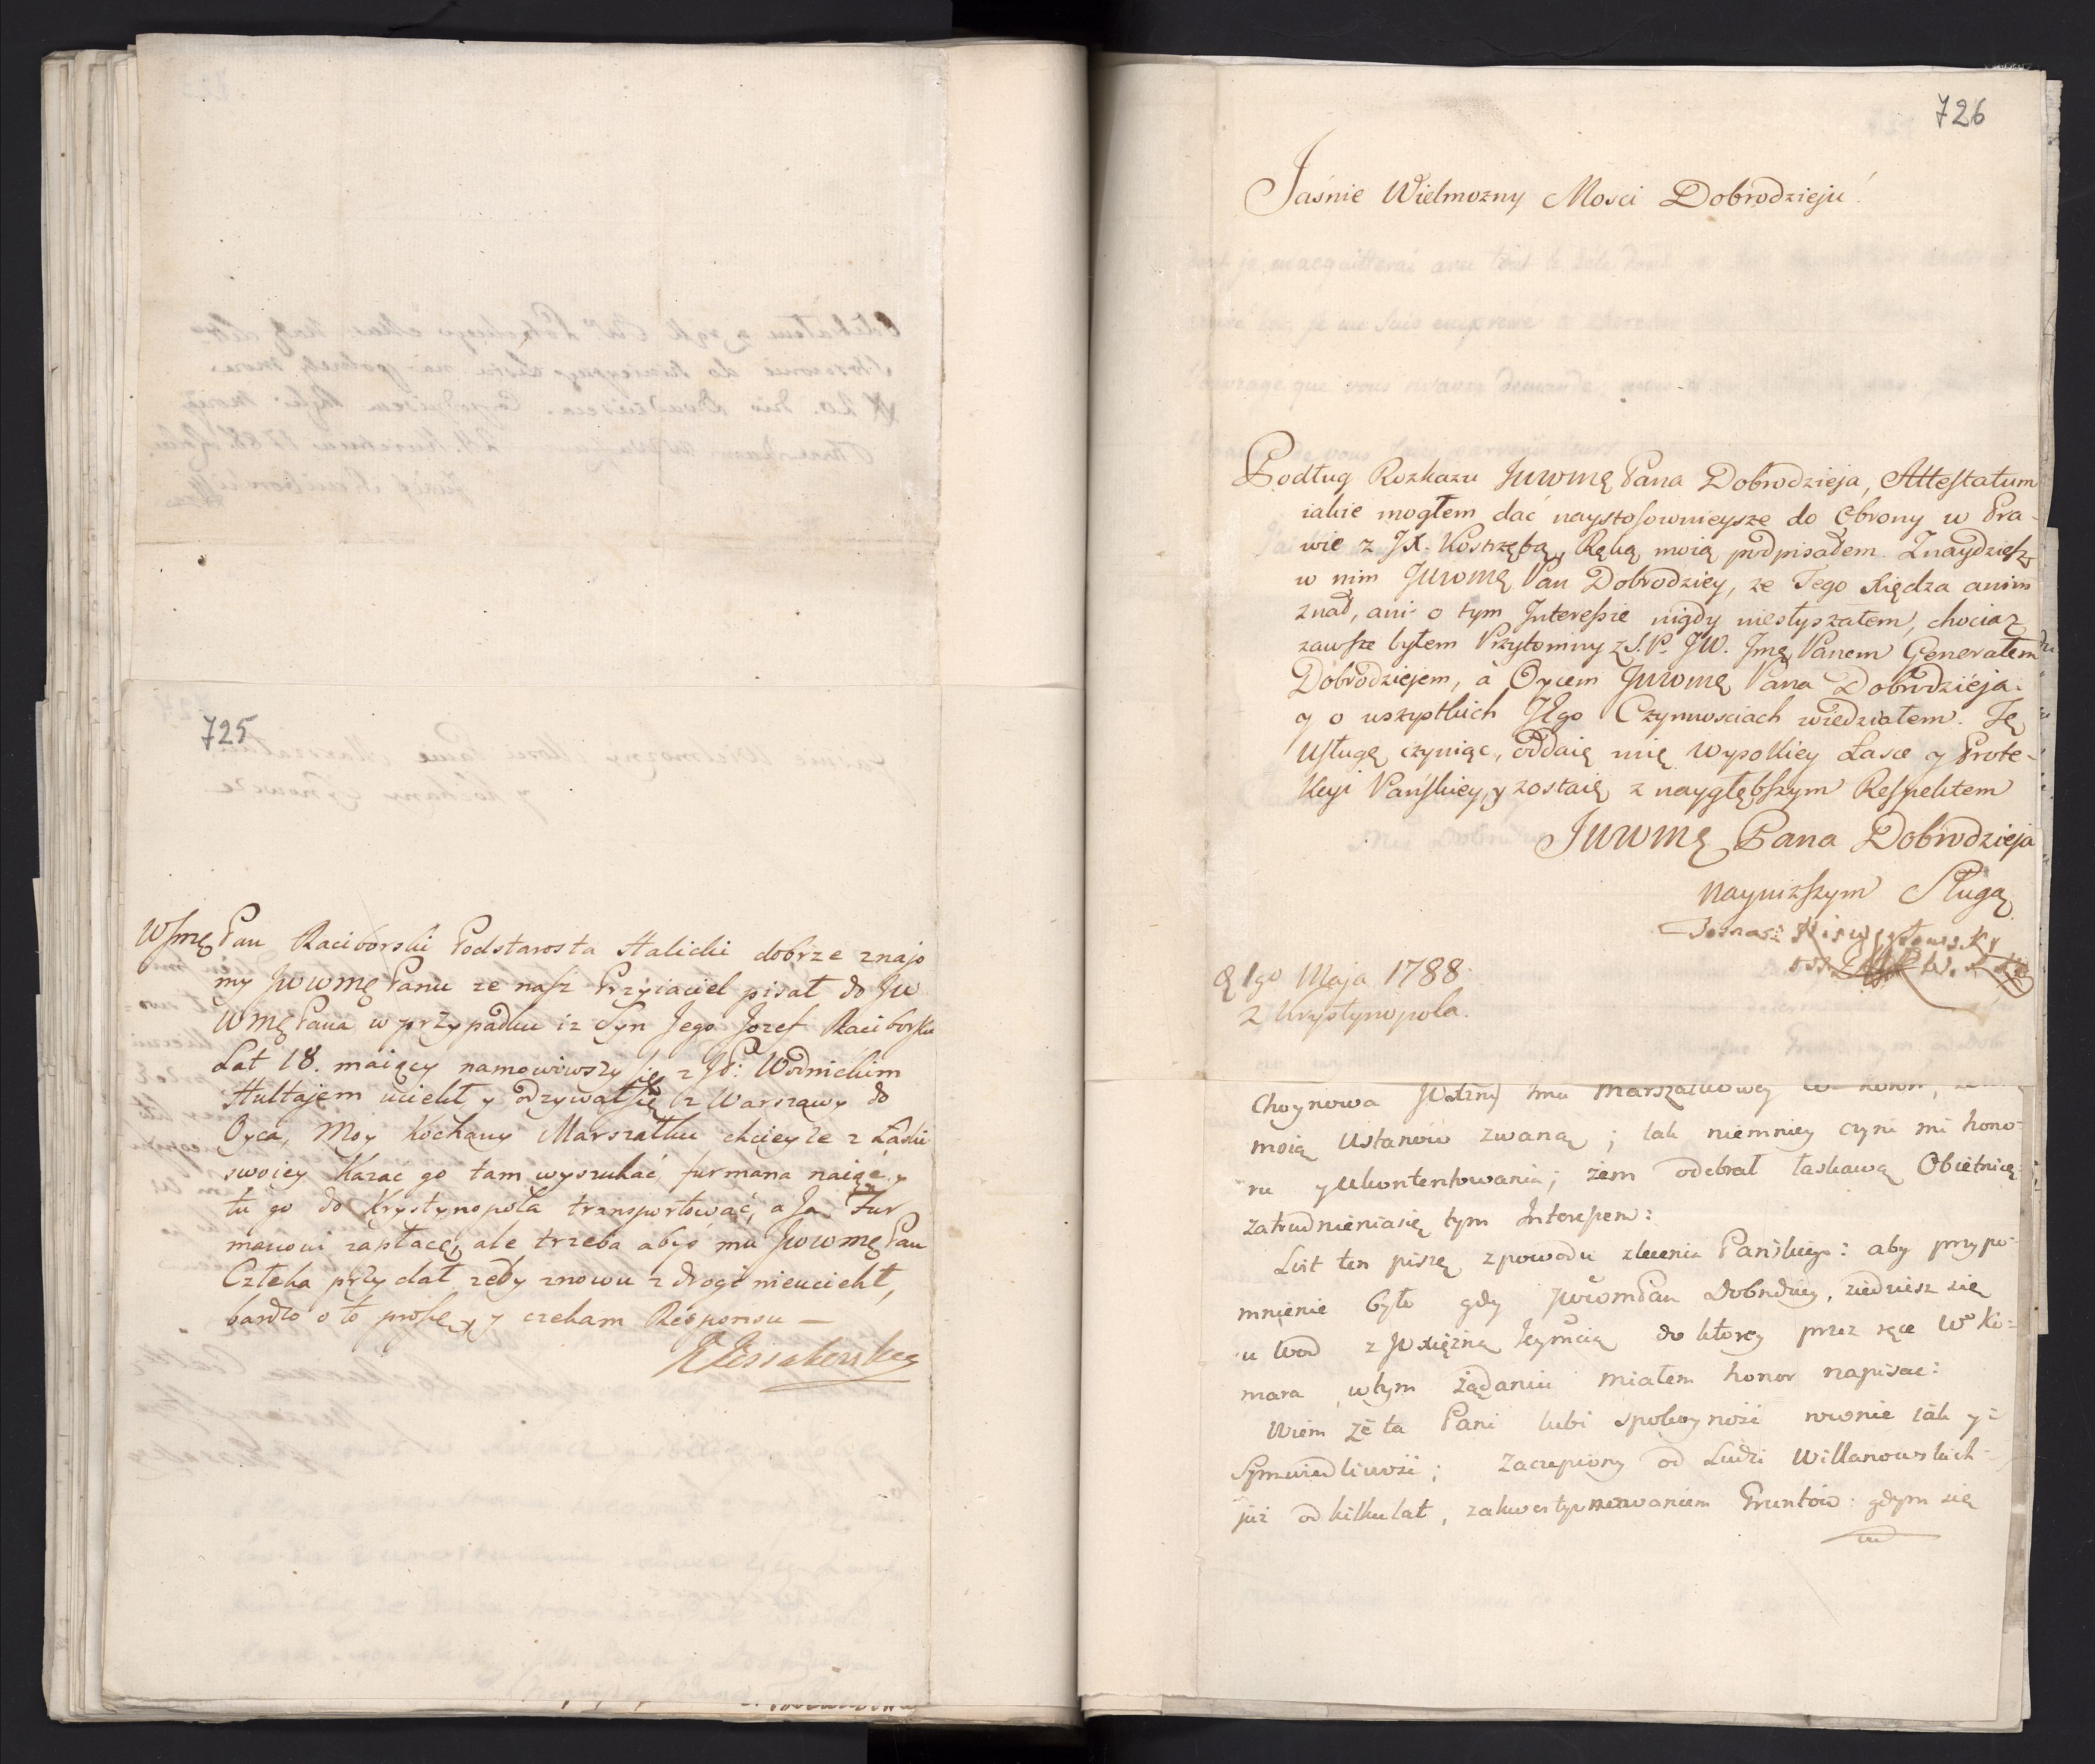 725
WJmę Pan Raciborski Podstarosta Halicki dobrze znajo
my JWWMę Panu ze nasz Przyiaciel pisał do JW
WMę Pana w przypadku iz Syn Jego Jozef Raciborski
Lat 18. maiący namowiwszy się z JP: Wodnickim
Hultajem uciekł y odzywał się z Warszawy do
Oyca, Moy Kochany Marszałku chciey że z Łaski
swoiey Kazać go tam wyszukać, furmana naiąć y
tu go do Krystynopola transportować, a Ja Fur
manowi zapłacę, ale trzeba abyś mu JWWMę Pan
Człeka przydał zeby znowu z drogi nieuciekł,
bardzo o to proszę, y czekam Responsu —
726
Jaśnie Wielmozny Mosci Dobrodzieju!
Podług Rozkazu JWWMę Pana Dobrodzieja, Attestatum
iakie mogłem dać naystosownieysze do Obrony w Pra-
wie z JX. Kostrzębą, Ręką moią podpisałem. Znaydziesz
w nim JWWMę Pan Dobrodziey, ze Tego Xiędza anim
znał, ani o tym Interessie nigdy niesłyszałem, chociaz
zawsze byłem Przytomny z S.P. JW. Jmę Panem Generałem
Dobrodziejem, à Oycem JWWMę Pana Dobrodzieja.
y o wszystkich JEgo Czynnosciach wiedziałem. Tę
Usługę czyniąc, oddaię mię wysokiey Łasce y Prote-
kcyi Pańskiey, y zostaię z naygłębszym Respektem
JWWMę Pana Dobrodzieja
nayniższym Sługą
Tomasz
D 1go Maja 1788.
z Krystynopola.
Choynowa Jmu Marszałkowey
moią Ustanow zwaną; tak niemniey czyni mi hono-
ru y Ukontentowania; żem odebrał łaskawą Obietnicę
zatrudnieniasię tym Interesem:
List ten piszę zpowodu zlecenia Pańskiego: aby przypo-
mnienie było gdy JWWMPan Dobrodziey, ziedziesz się
u Wod z JW Xiężną Jeymcią do ktorey przez ręce Wo Ko-
mara wtym żądaniu miałem honor napisać:
Wiem że ta Pani lubi spokoyność rownie iak y
Sprawiedliwość; Zaczepiony od Ludzi Willanowskich
już od kilku lat, zakwestyonowaniem Gruntów: gdym się